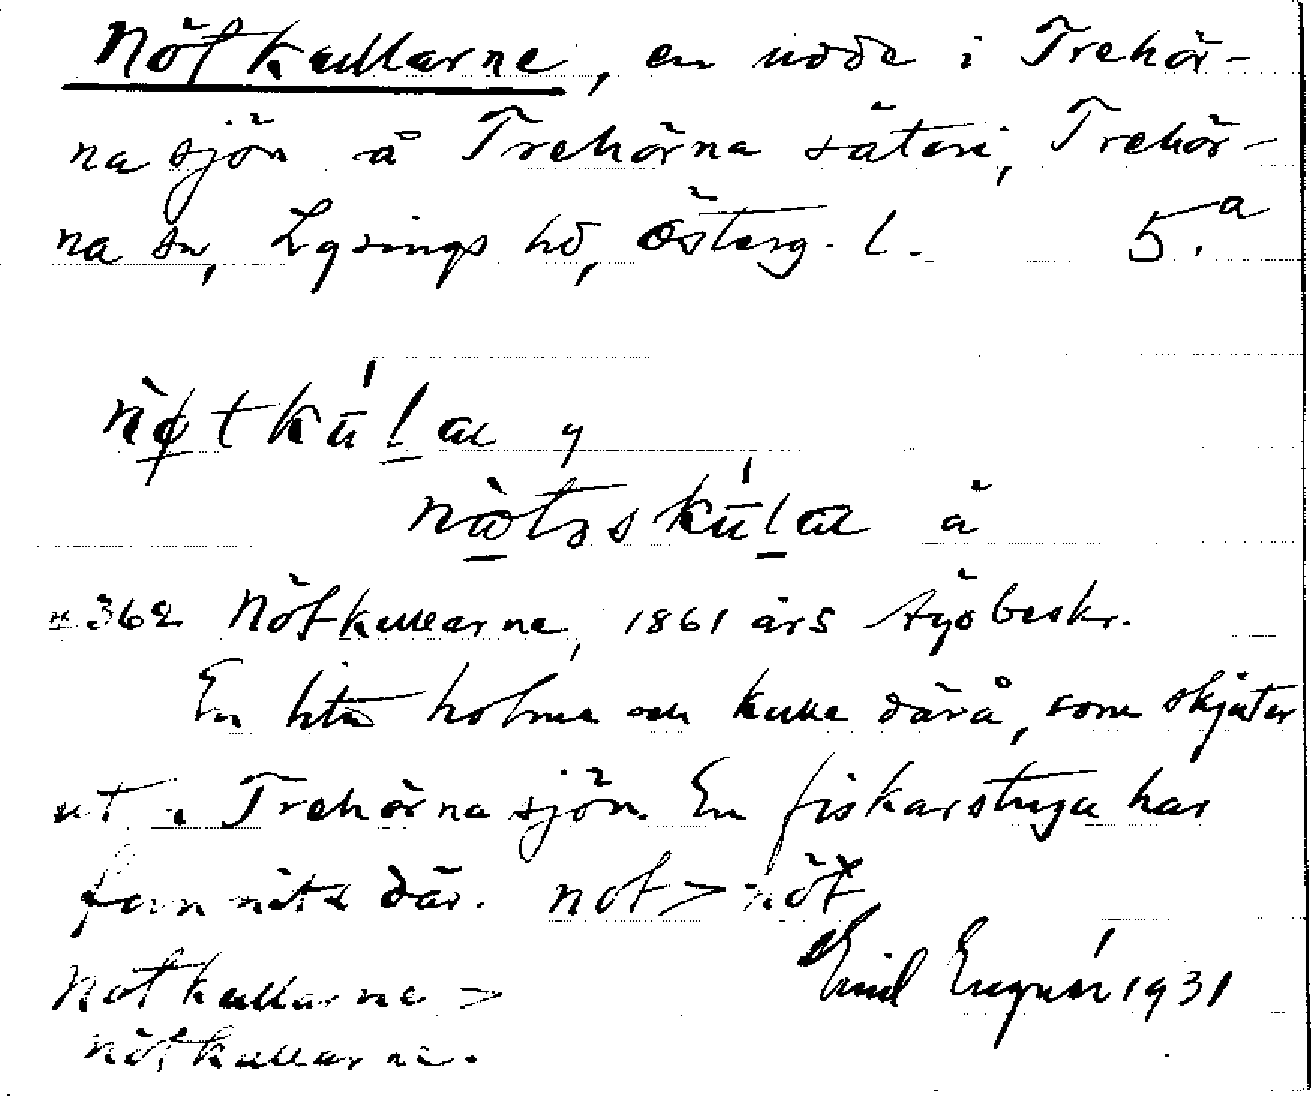 Nötkullarne, en udde i Trehör-
na sjön å Trehörna säteri, Trehör-
na sn, Lysings hd, Österg. l. 5.a
nø̀tkū́l̠ar
kū́l̠ar å
362 Nötkullarne, 1861 års
En liten holme och kulle därå, som skjuter
ut i Trehörnasjön. En fiskarstuga har
funnits där. not > nöt
Notkullarne >
nötkullarne.
Emil Engnér 1931